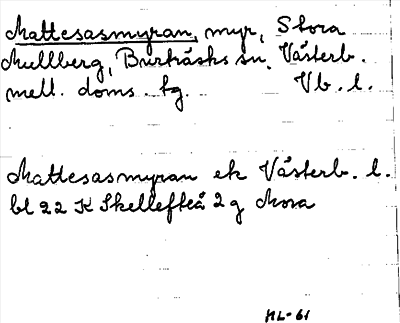 Mattesasmyran, myr, Stora
Mullberg, Burträsks sn. Västerb.
mell. doms. hg. Vb. l.
Mattesasmyran ek Västerb. l.
bl 22 K Skellefteå 2 g Mosa
ML-61